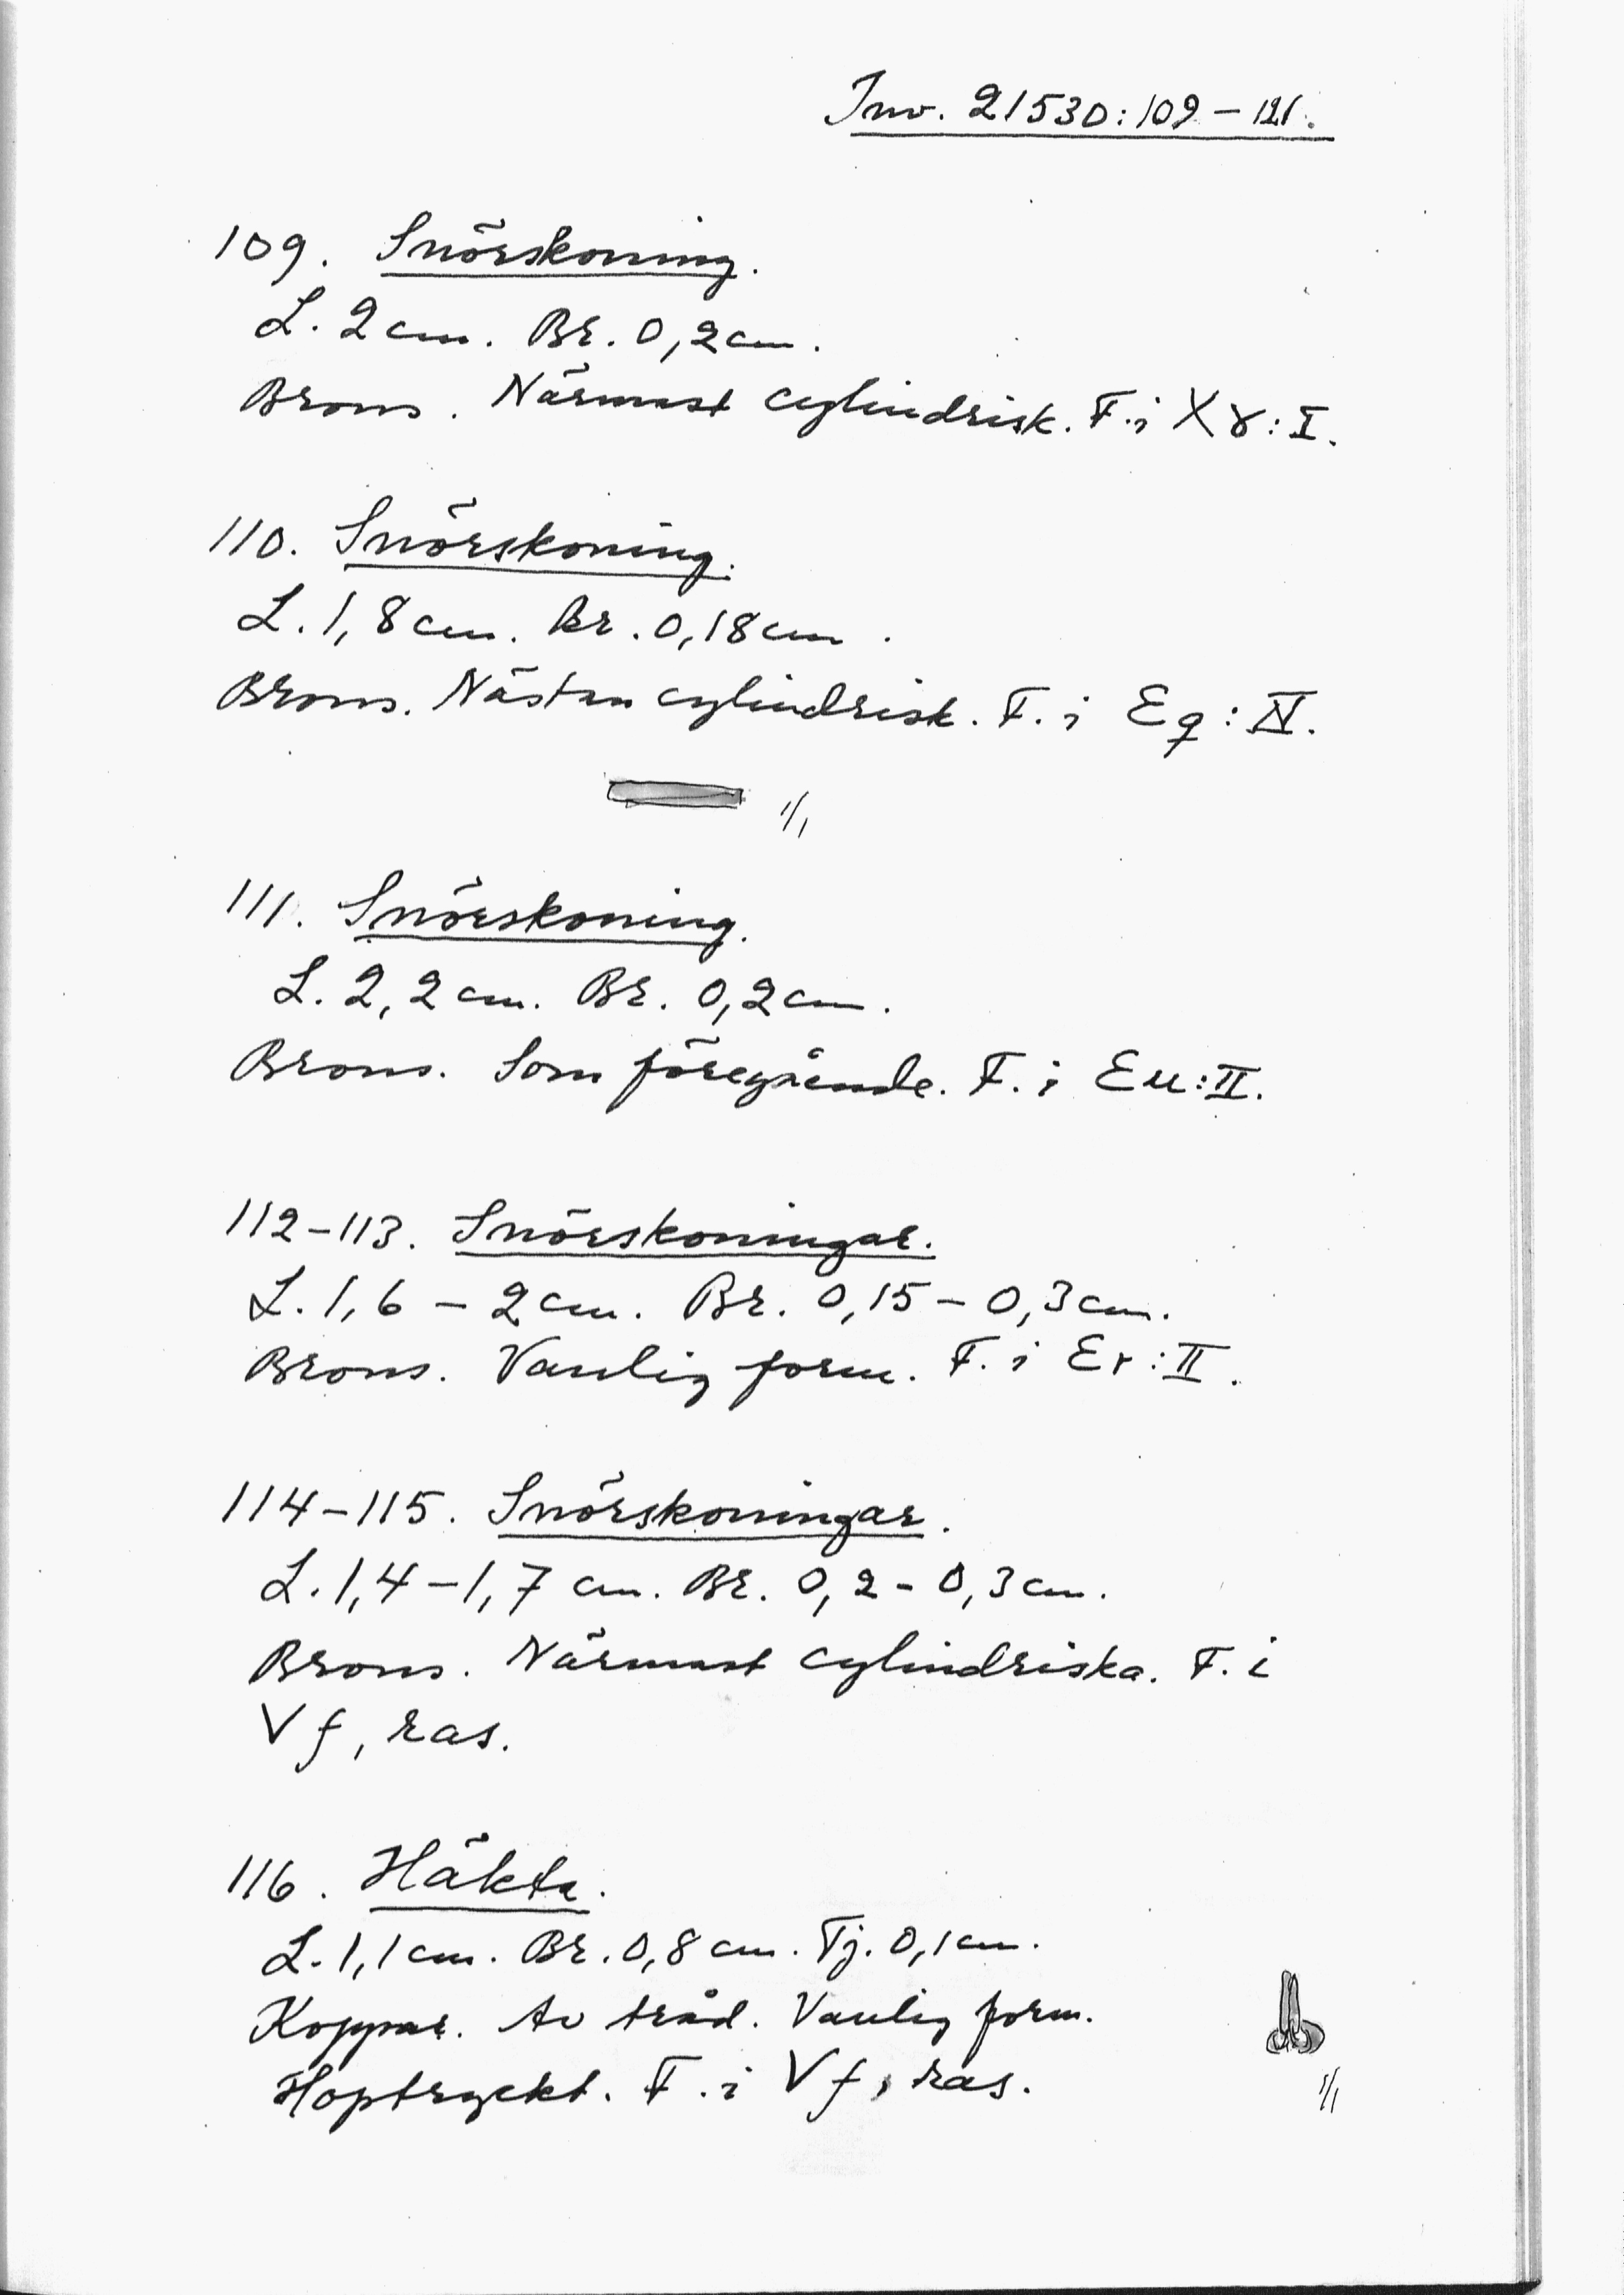 Inv. 21530:109–121.
109. Snörskoning.
L. 2 cm. Br. 0,2 cm.
Brons. Närmast cylindrisk. F. i X8:I.
110. Snörskoning.
L. 1,8 cm. Br. 0,18 cm.
Brons. Nästan cylindrisk. F. i Eq:IV.
1/1
111. Snörskoning.
L. 2,2 cm. Br. 0,2 cm.
Brons. Som föregående. F. i Eu:II.
112–113. Snörskoningar.
L. 1,6 – 2 cm. Br. 0,15 – 0,3 cm.
Brons. Vanlig form. F. i Er:II.
114–115. Snörskoningar.
L. 1,4 – 1,7 cm. Br. 0,2 – 0,3 cm.
Brons. Närmast cylindriska. F. i
Vf, ras.
116. Häkta.
L. 1,1 cm. Br. 0,8 cm. Tj. 0,1 cm.
Koppar. Av tråd. Vanlig form.
Hoptryckt. F. i Vf, ras.
1/1